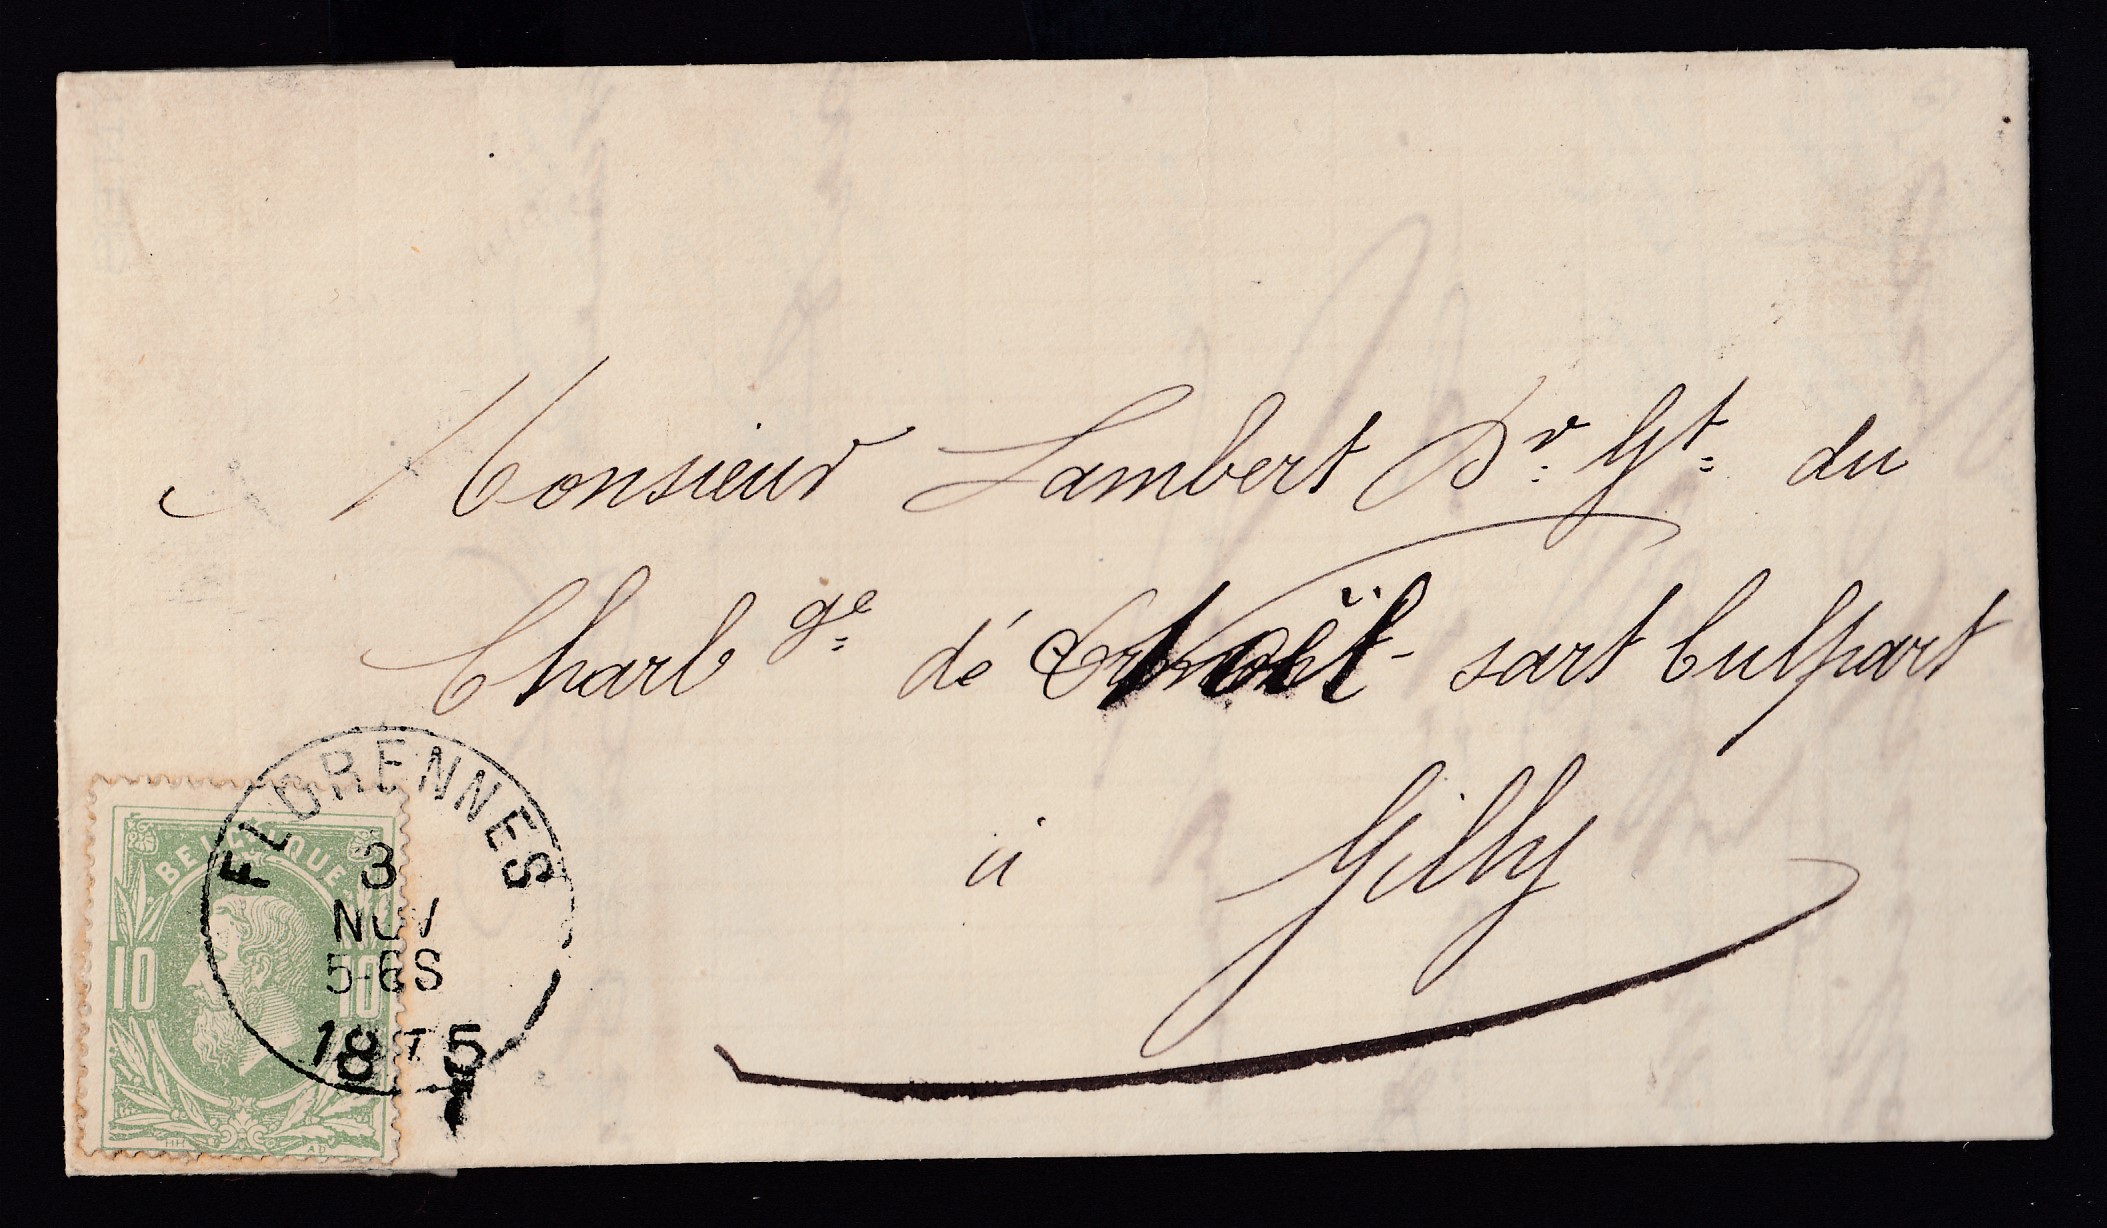 Monsieur Lambert Dr. Gt. du
Charbge. dé Noël-sart Culpart
à Gilly
FLORENNES
3
NOV
5-6S
1875
BELGIQUE
10 10